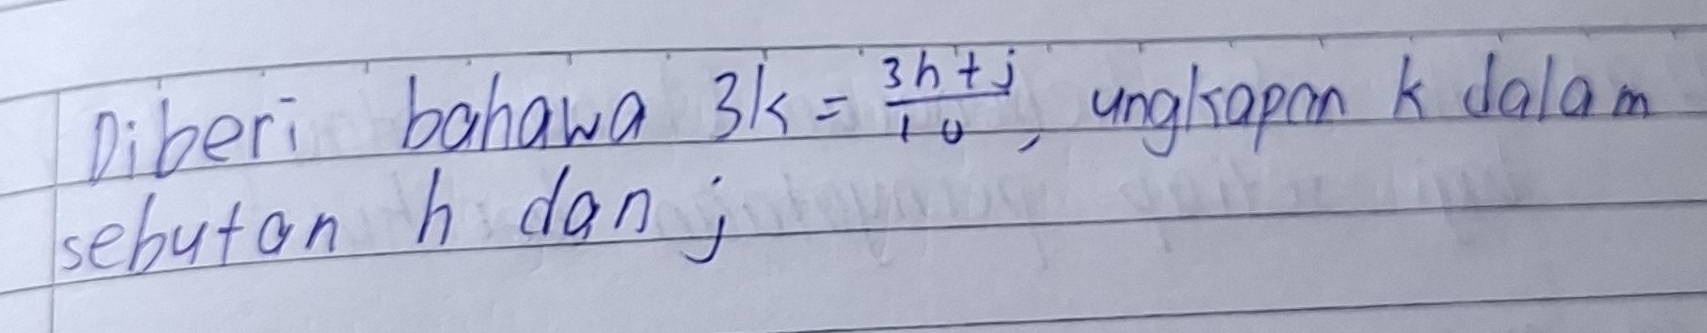 Diberi bahawa 3k = \frac{3h+j}{10}, ungkapan k dalam
sebutan h dan j